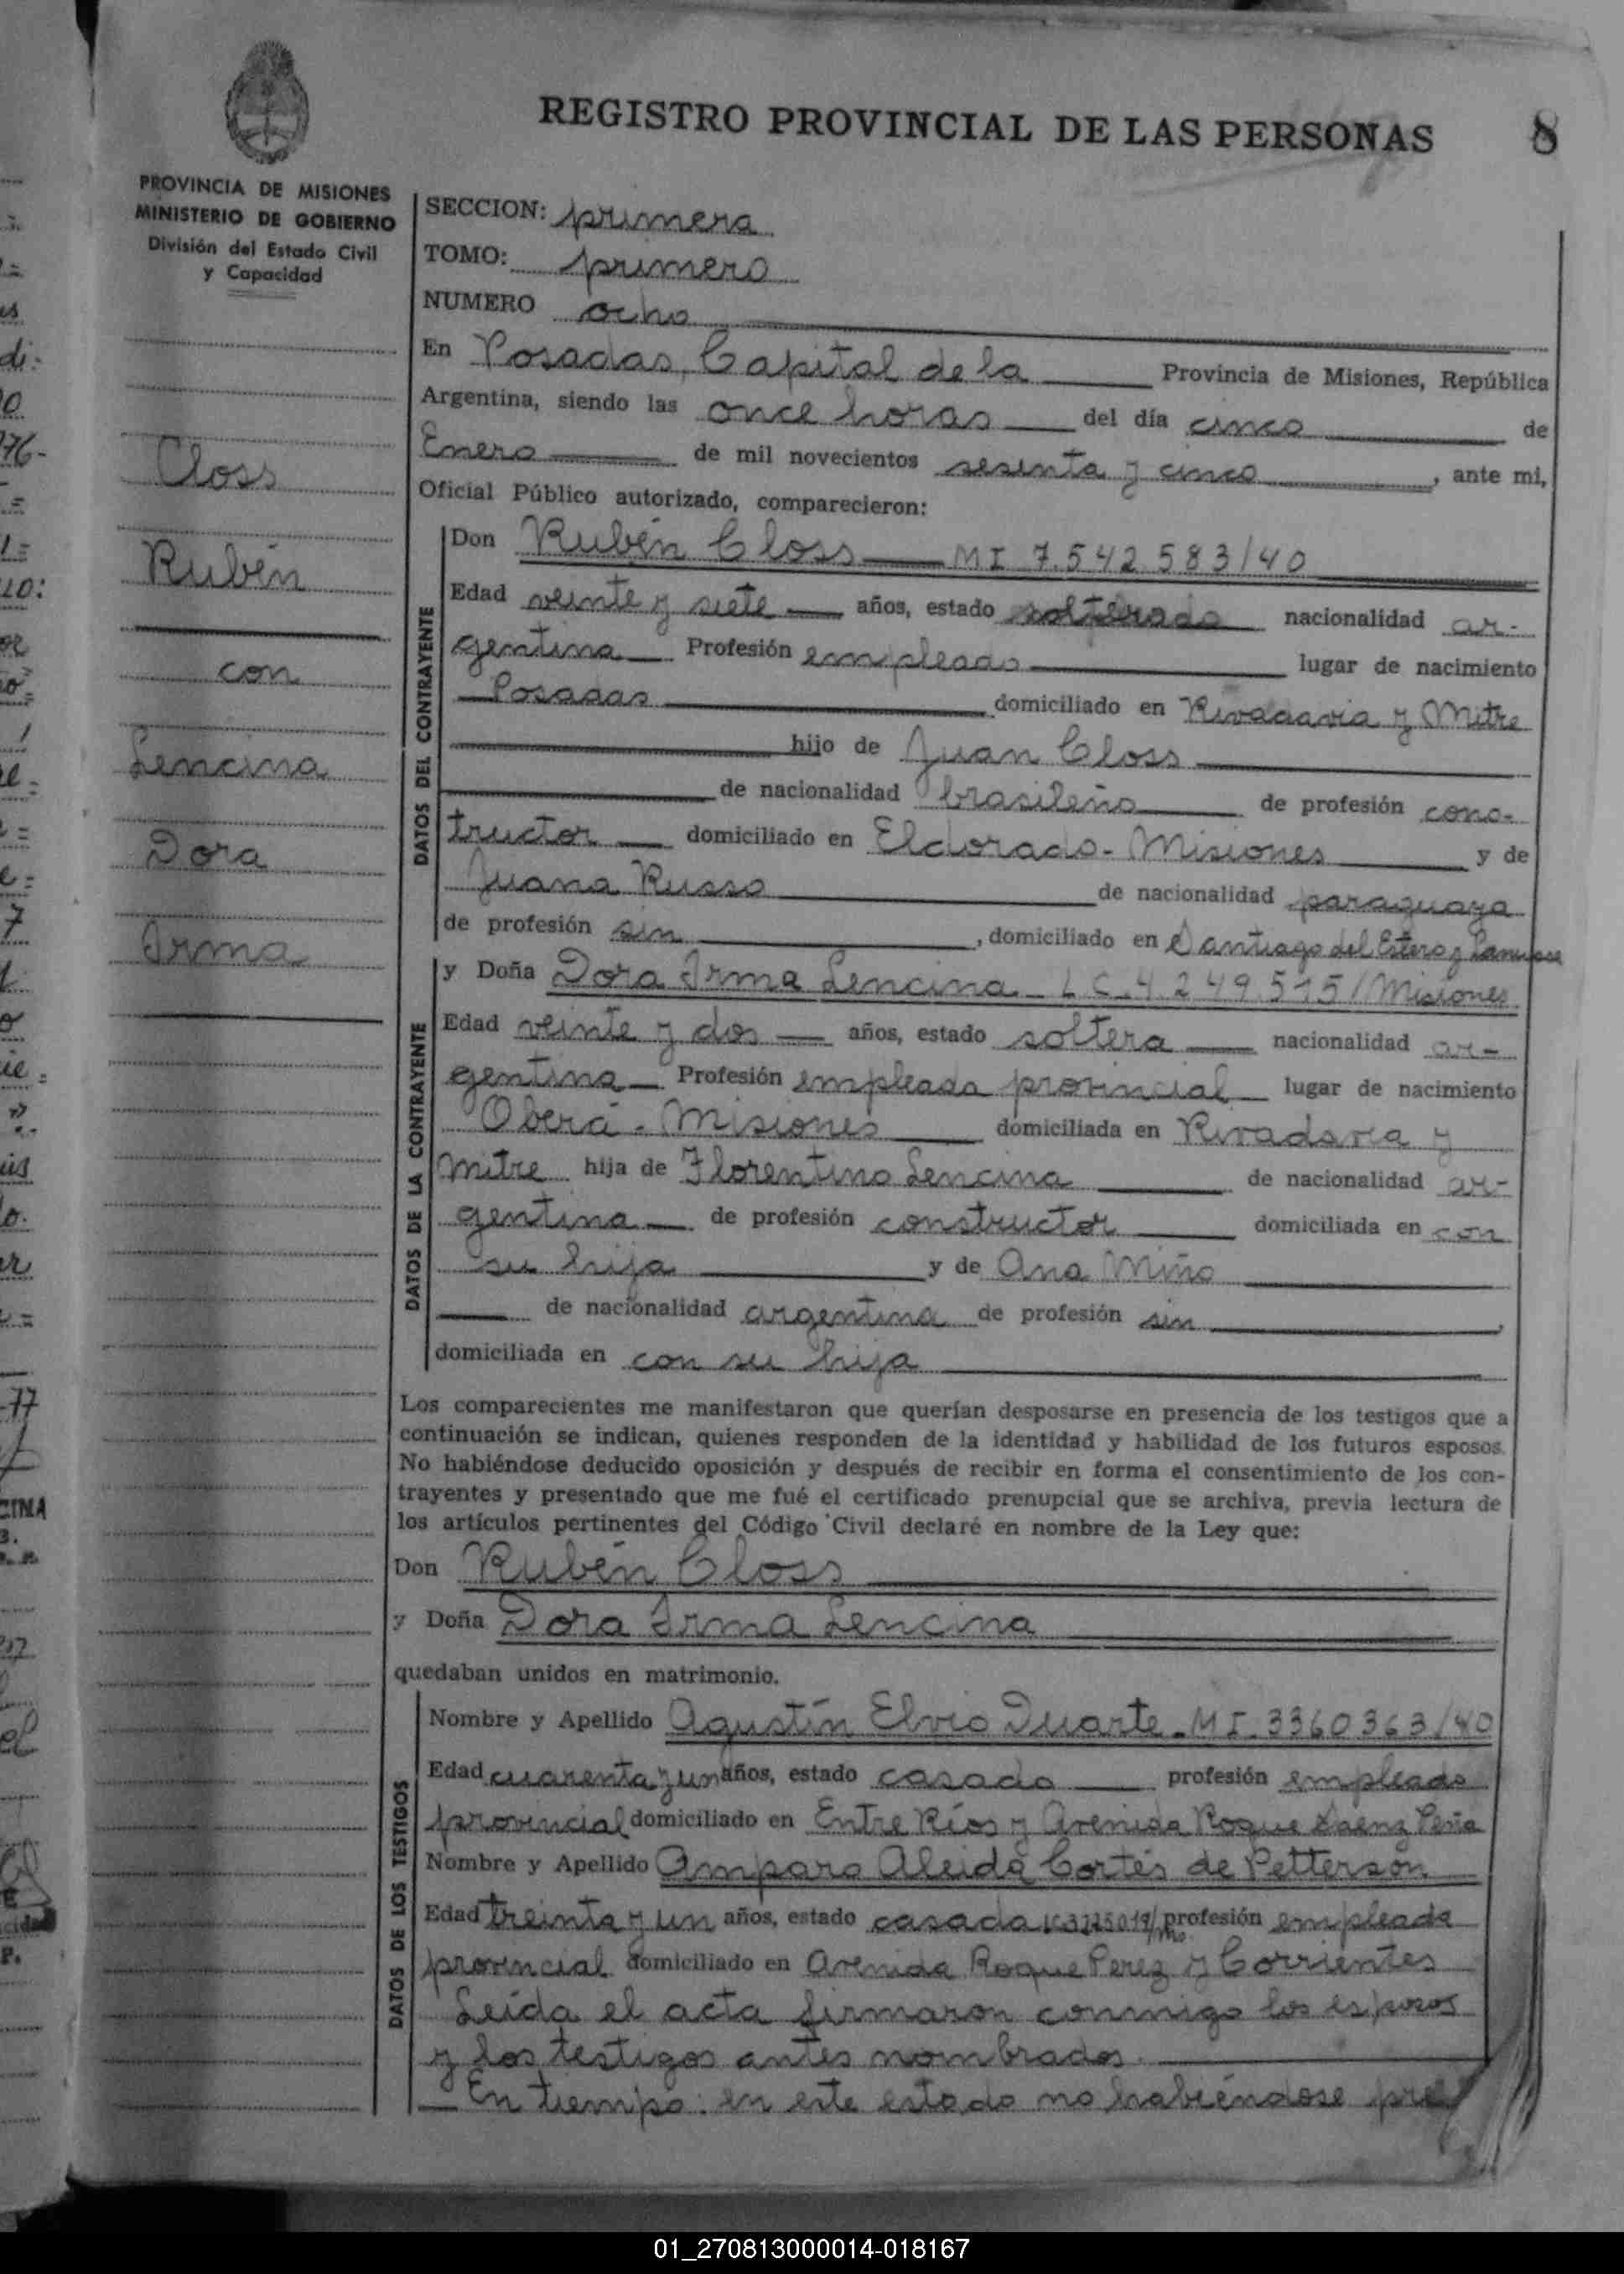 REGISTRO PROVINCIAL DE LAS PERSONAS 8
PROVINCIA DE MISIONES
MINISTERIO DE GOBIERNO
División del Estado Civil
y Capacidad
Closs
Rubén
con
Lencina
Dora
Irma
SECCION: primera
TOMO: primero
NUMERO ocho
En Posadas, Capital de la Provincia de Misiones, República
Argentina, siendo las once horas del día cinco de
Enero de mil novecientos sesenta y cinco, ante mi,
Oficial Público autorizado, comparecieron:
DATOS DEL CONTRAYENTE
Don Rubén Closs MI 7.542.583/40
Edad veinte y siete años, estado nacionalidad ar-
gentina Profesión empleado lugar de nacimiento
Posadas domiciliado en Rivadavia y Mitre
hijo de Juan Closs
de nacionalidad brasileño de profesión cons-
tructor domiciliado en Eldorado - Misiones y de
Juana Russo de nacionalidad paraguaya
de profesión sin, domiciliado en Santiago del Estero y
DATOS DE LA CONTRAYENTE
y Doña Dora Irma Lencina - L C. 4.249.515/Misiones
Edad veinte y dos años, estado soltera nacionalidad ar-
gentina Profesión empleada provincial lugar de nacimiento
Oberá - Misiones domiciliada en Rivadavia y
Mitre hija de Florentino Lencina de nacionalidad ar-
gentina de profesión constructor domiciliada en con
su hija y de Ana Miño
de nacionalidad argentina de profesión sin,
domiciliada en con su hija
Los comparecientes me manifestaron que querían desposarse en presencia de los testigos que a
continuación se indican, quienes responden de la identidad y habilidad de los futuros esposos.
No habiéndose deducido oposición y después de recibir en forma el consentimiento de los con-
trayentes y presentado que me fué el certificado prenupcial que se archiva, previa lectura de
los artículos pertinentes del Código Civil declaré en nombre de la Ley que:
Don Rubén Closs
y Doña Dora Irma Lencina
quedaban unidos en matrimonio.
DATOS DE LOS TESTIGOS
Nombre y Apellido Agustín Elvio Duarte - MI - 3360363/40
Edad cuarenta y un años, estado casado profesión empleado
provincial domiciliado en Entre Ríos y Avenida Roque Sáenz Peña
Nombre y Apellido Amparo Aleida Cortés de Petterson
Edad treinta y un años, estado casada profesión empleada
provincial domiciliado en Avenida Roque Perez y Corrientes
Leída el acta firmaron conmigo los esposos
y los testigos antes nombrados.
En tiempo: en este estado no habiéndose pre
01_270813000014-018167